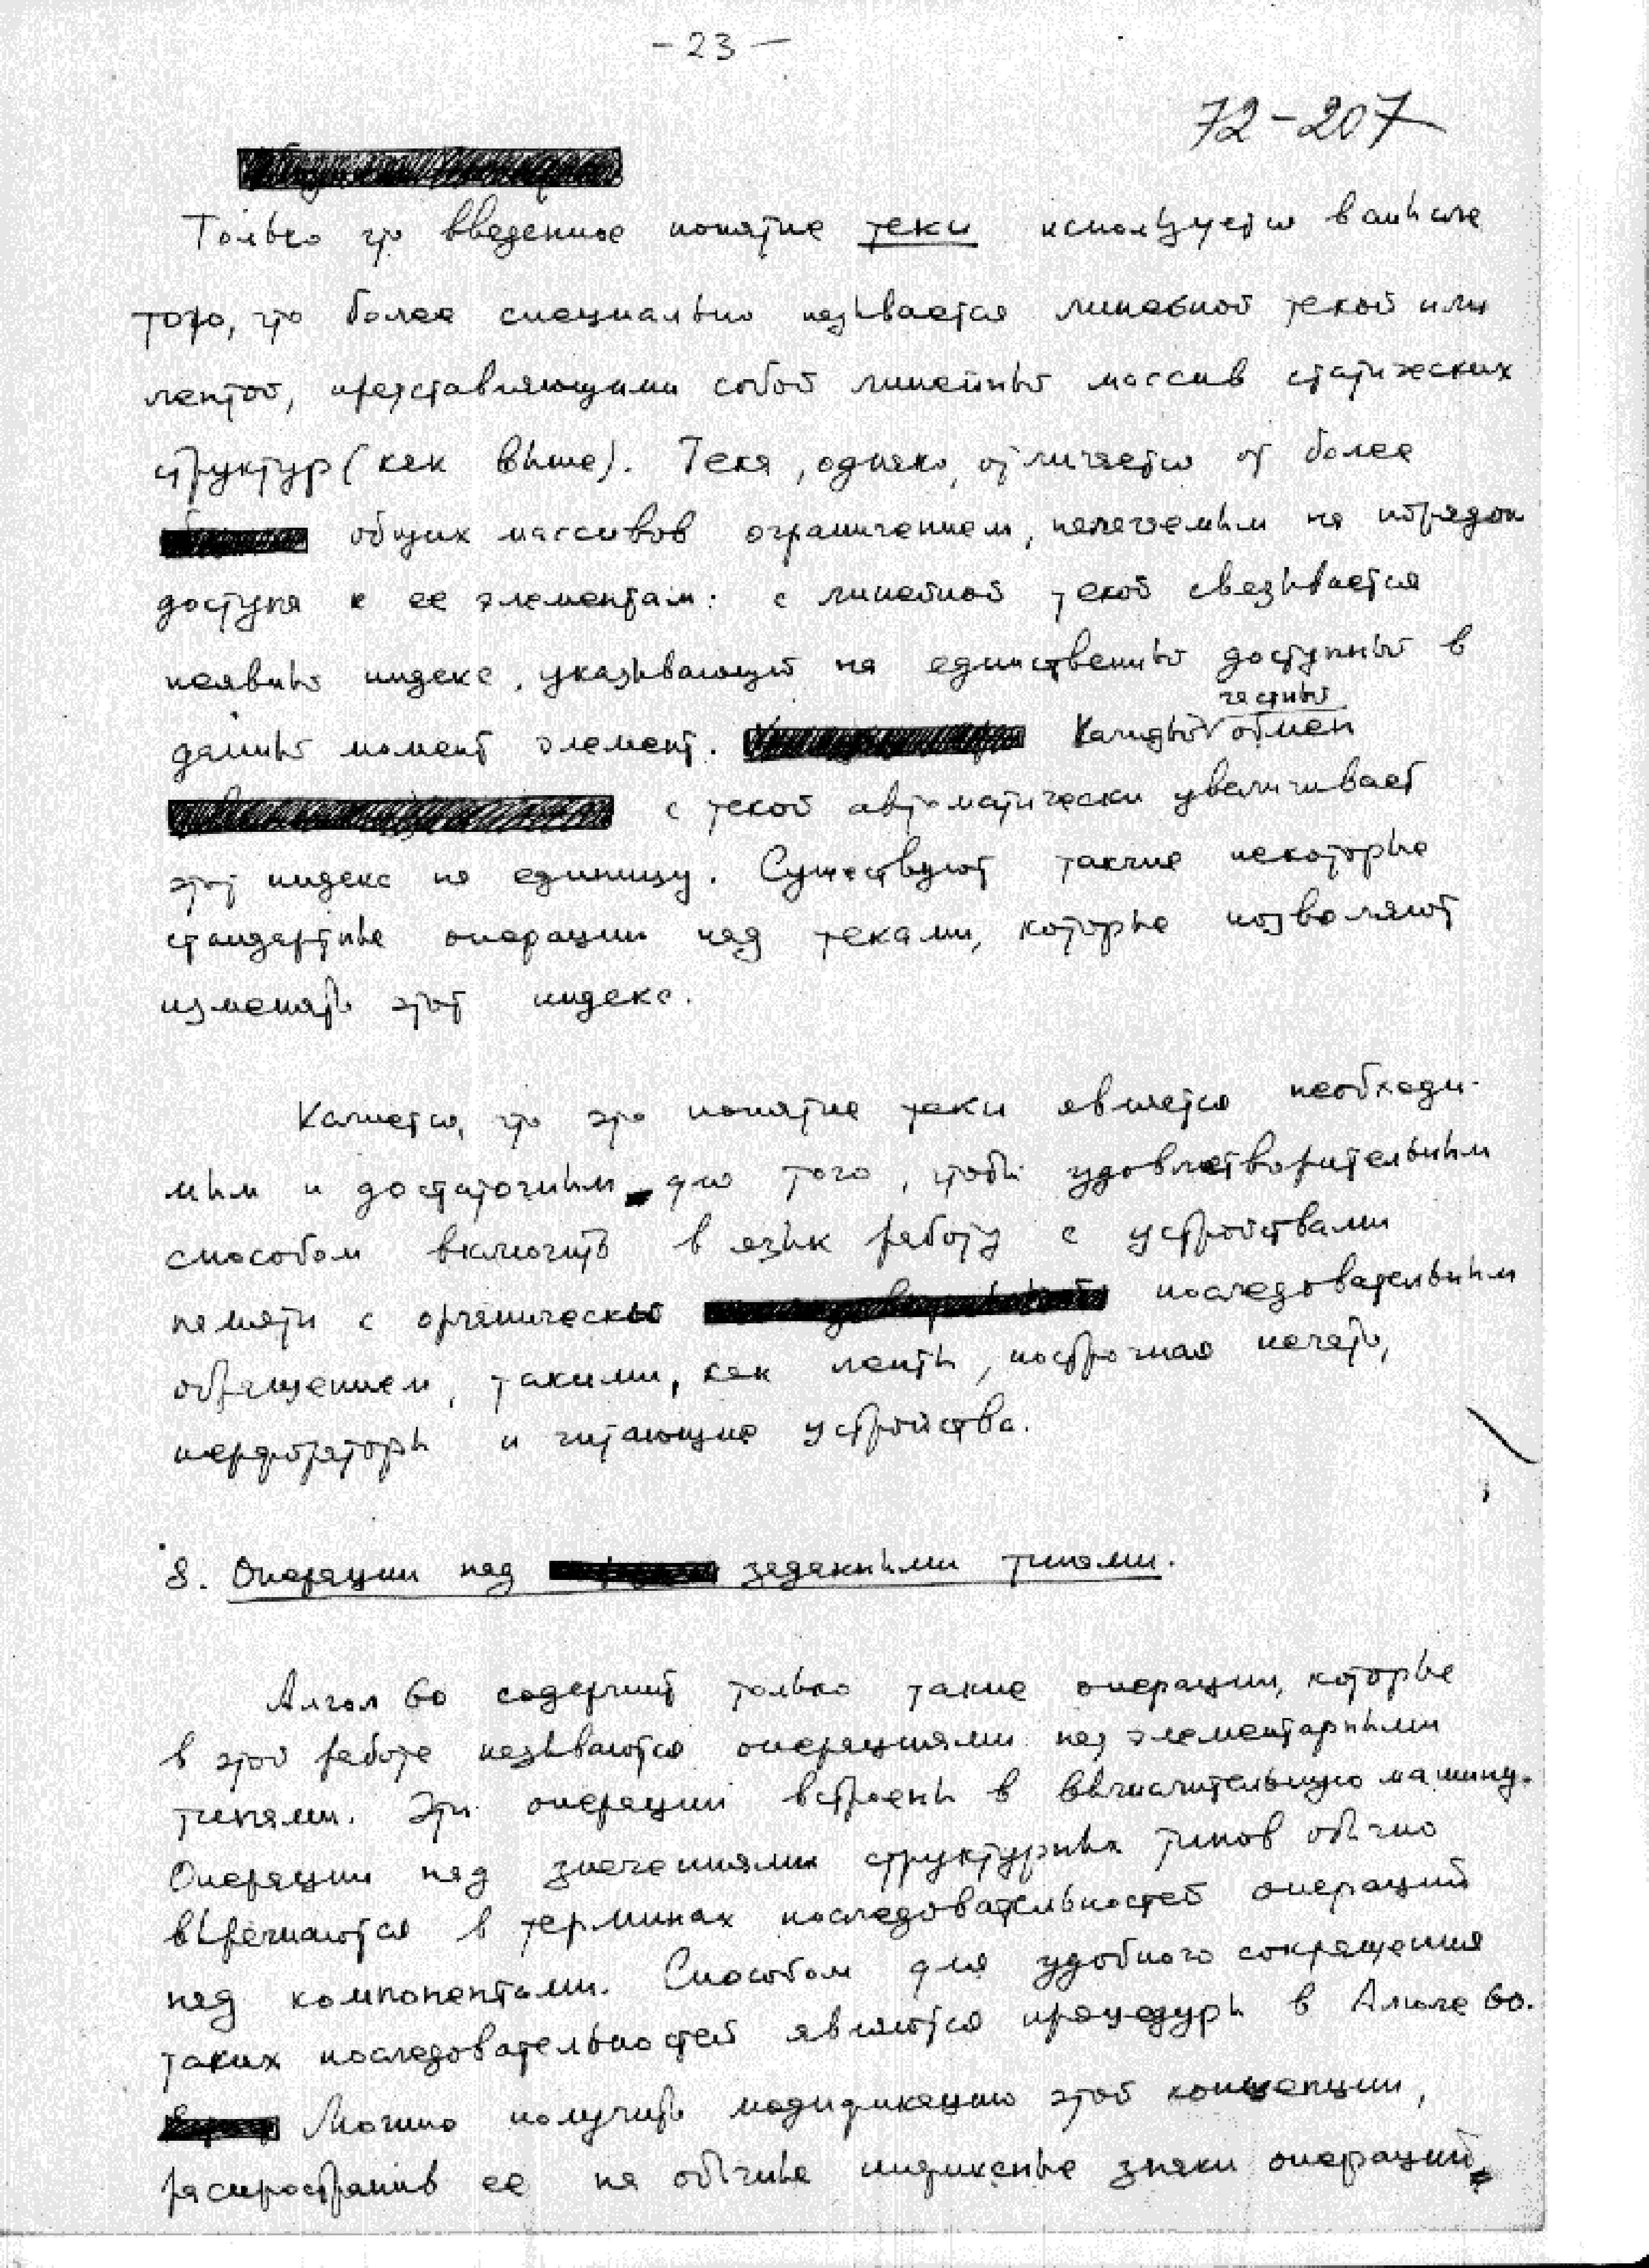 - 23 -
72-207
Только что введенное понятие теки используется в смысле
того, что более специально называется линейной текой или
лентой, представляющими собой линейный массив статических
структур (как выше). Тека, однако, отличается от более
общих массивов ограничением, налагаемым на порядок
доступа к ее элементам: с линейной текой связывается
неявный индекс, указывающий на единственный доступный в
данный момент элемент. Каждый частный обмен
с текой автоматически увеличивает
этот индекс на единицу. Существуют также некоторые
стандартные операции над теками, которые позволяют
изменять этот индекс.
Кажется, что это понятие теки является необходи-
мым и достаточным для того, чтобы удовлетворительным
способом включить в язык работу с устройствами
памяти с органически последовательным
обращением, такими, как ленты, построчная печать,
перфораторы и читающие устройства.
8. Операции над заданными типами.
Алгол 60 содержит только такие операции, которые
в этой работе называются операциями над элементарными
типами. Эти операции встроены в вычислительную машину.
Операции над значениями структурных типов обычно
выражаются в терминах последовательностей операций
над компонентами. Способом для удобного сокращения
таких последовательностей являются процедуры в Алголе 60.
Можно получить модификацию этой концепции,
распространив ее на обычные инфиксные знаки операций